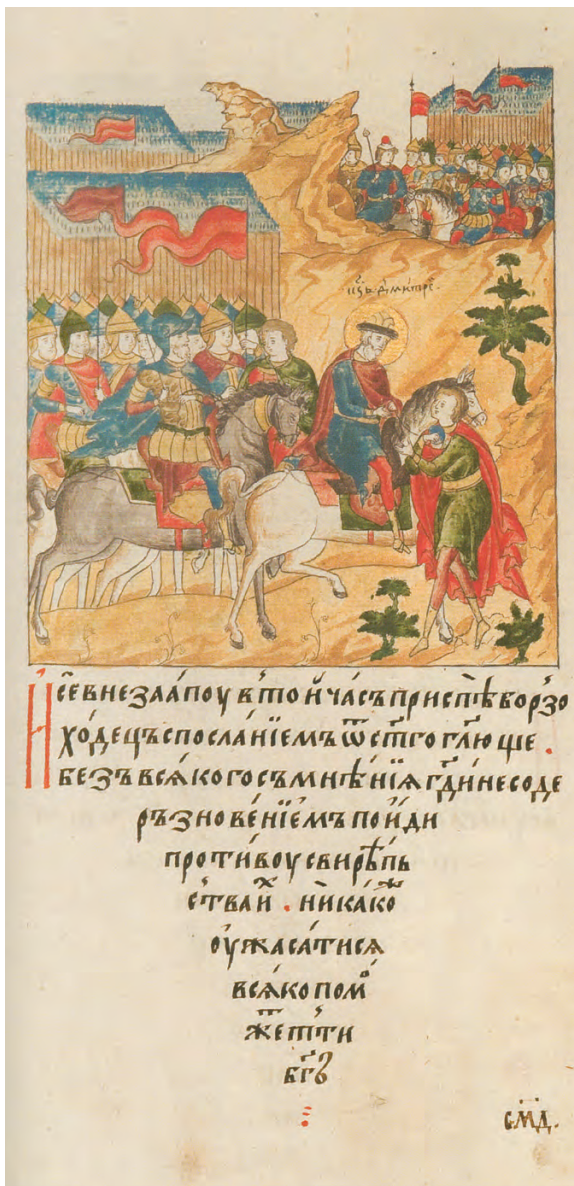 кн҃зь дмитре
И се́ внеза́апоу в то́й ча́съ приспѣ̀ бо́рзо
хо́децъ с посла́нїемъ ѿ ст҃го гл҃юще .
безъ всѧ́кого съмнѣ́нїѧ гд҃и́не со де
ръзнове́нїемъ пои́ди
проти́воу свирѣ́пь
ства и́ⷯ . ника́коⷤ
оужаса́тисѧ
всѧ́ко помⷪ
жеⷮ ти
бг҃ъ
с҃мд.